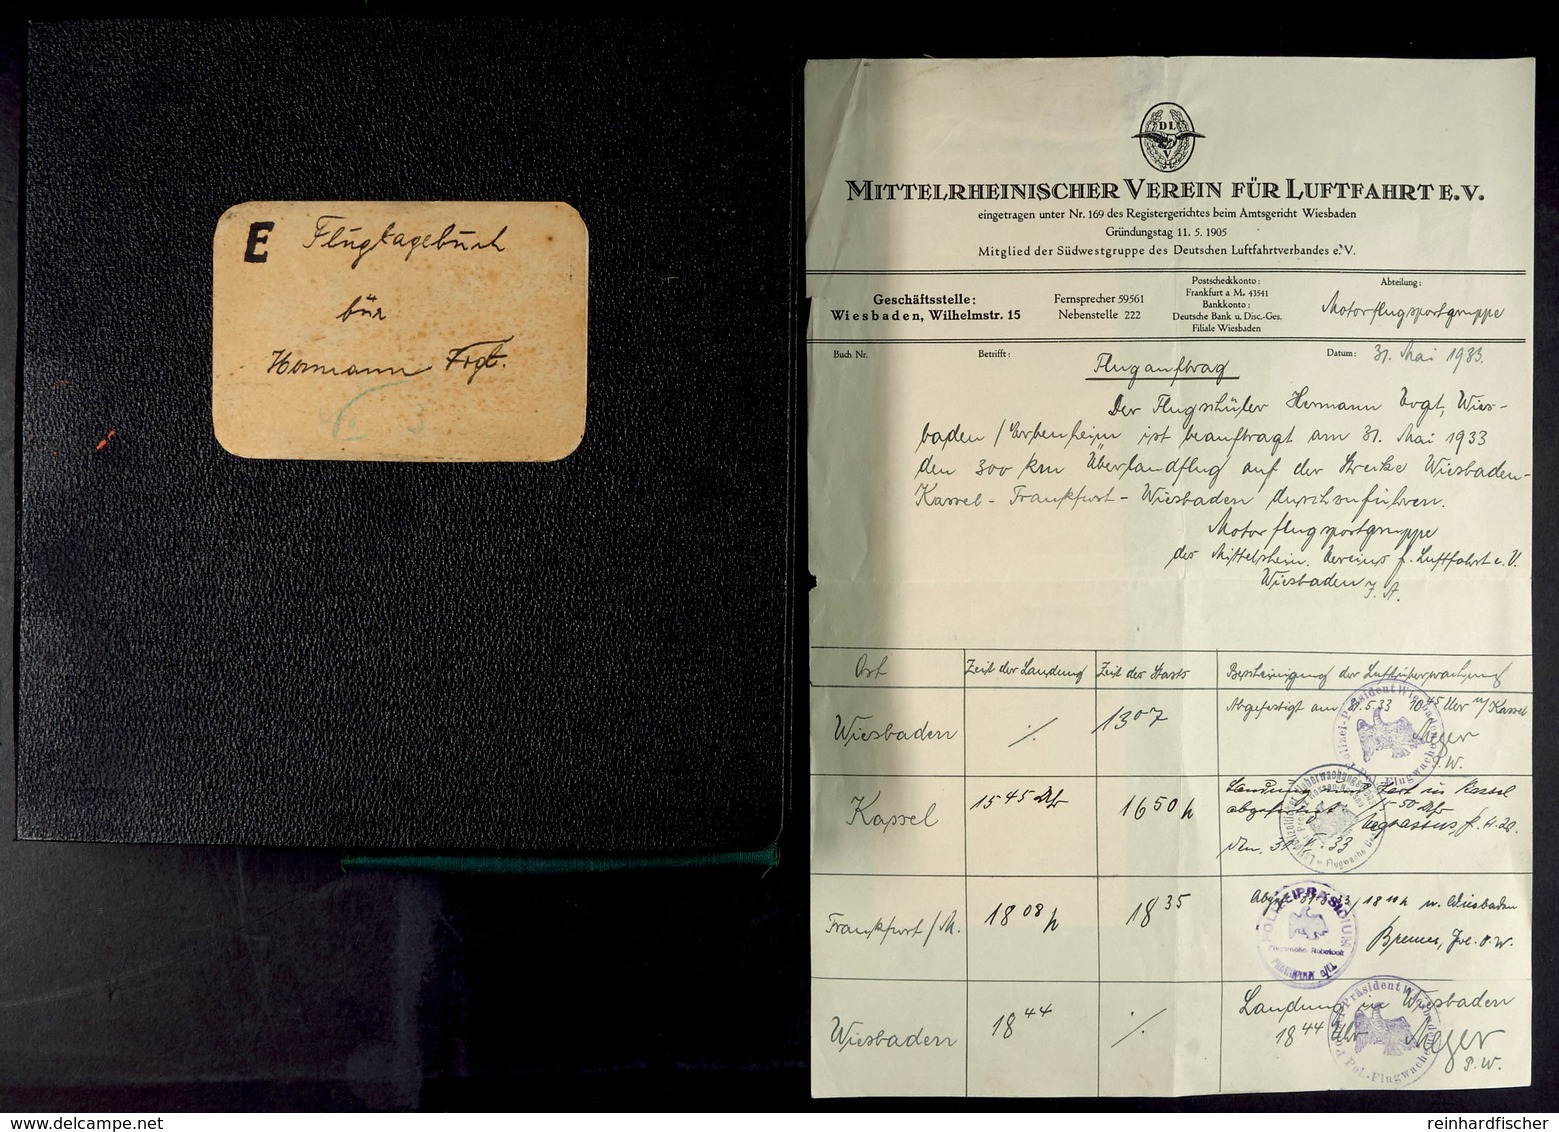 E Flugtagebuch
für
Hermann Vogt.
3
DL
V
MITTELRHEINISCHER VEREIN FÜR LUFTFAHRT E.V.
eingetragen unter Nr. 169 des Registergerichtes beim Amtsgericht Wiesbaden
Gründungstag 11. 5. 1905
Mitglied der Südwestgruppe des Deutschen Luftfahrtverbandes e.V.
Geschäftsstelle:
Wiesbaden, Wilhelmstr. 15
Fernsprecher 59561
Nebenstelle 222
Postscheckkonto:
Frankfurt a M. 43541
Bankkonto:
Deutsche Bank u. Disc.-Ges.
Filiale Wiesbaden
Abteilung:
Motorflugsportgruppe
Buch Nr.
Betrifft:
Datum: 31. Mai 1933.
Flugauftrag
Der Flugschüler Hermann Vogt, Wies-
baden / Erbenheim ist beauftragt am 31. Mai 1933
den 300 km Überlandflug auf der Strecke Wiesbaden-
Kassel - Frankfurt - Wiesbaden durchzuführen.
Motorflugsportgruppe
des Mittelrhein. Vereins f. Luftfahrt e. V.
Wiesbaden
J. A.
Ort Zeit der Landung Zeit des Starts Bescheinigung der Luftüberwachung
Wiesbaden ./. 13 07
Abgefertigt am 31.5.33 10 45 Uhr n/Kassel
Meger
P.W.
Polizei-Präsident Wiesbaden
Pol.-Flugwache
Kassel 15 45 Uhr 16 50 h
Landung und Start in Kassel
abgefertigt 15 50 Uhr
den 31.5.33
Flugwache
Frankfurt / M. 18 08 h 18 35
31.5.33 / 18 10 h n. Wiesbaden
Bremer, Pol. O. W.
POLIZEIPRÄSIDIUM
Flugwache Rebstock
FRANKFURT
Wiesbaden 18 44 ./.
Landung in Wiesbaden
18 44 Uhr Meger
P.W.
Polizei-Präsident Wiesbaden
Pol.-Flugwache
www.delcampe.net
reinhardfischer